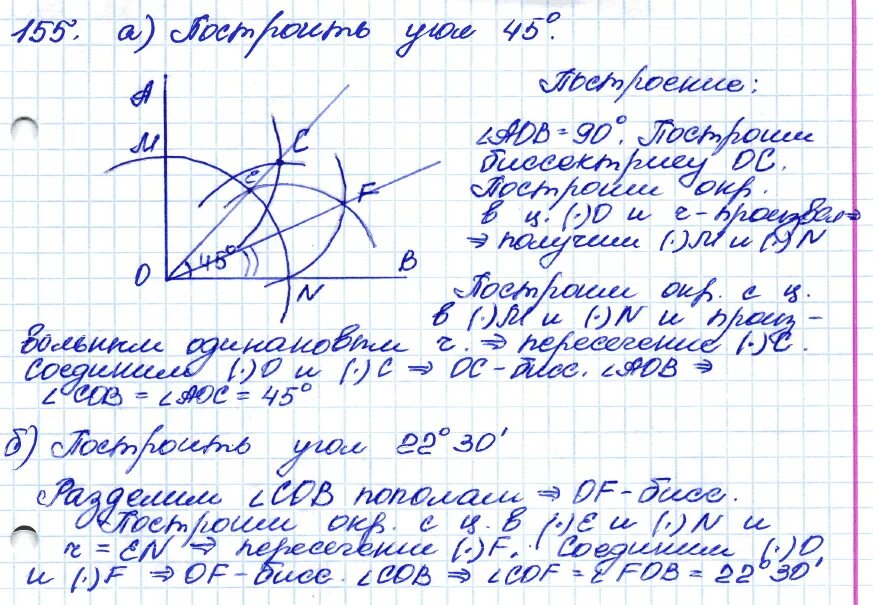 155. а) Построить угол 45°.
Построение:
A
M
C
E
F
O
45°
N
B
∠AOB = 90°. Построим
биссектрису OC.
Построим окр.
в ц. (·)O и r - произвол ⇒
⇒ получим (·)M и (·)N
Построим окр. с ц.
в (·)M и (·)N и произ-
вольным одинаковым r. ⇒ пересечение (·)C.
Соединим (·)O и (·)C ⇒ OC - бисс. ∠AOB ⇒
∠COB = ∠AOC = 45°
б) Построить угол 22°30'
Разделим ∠COB пополам ⇒ OF - бисс.
Построим окр. с ц. в (·)E и (·)N и
r = EN ⇒ пересечение (·)F. Соединим (·)O
и (·)F ⇒ OF - бисс. ∠COB ⇒ ∠COF = ∠FOB = 22°30'